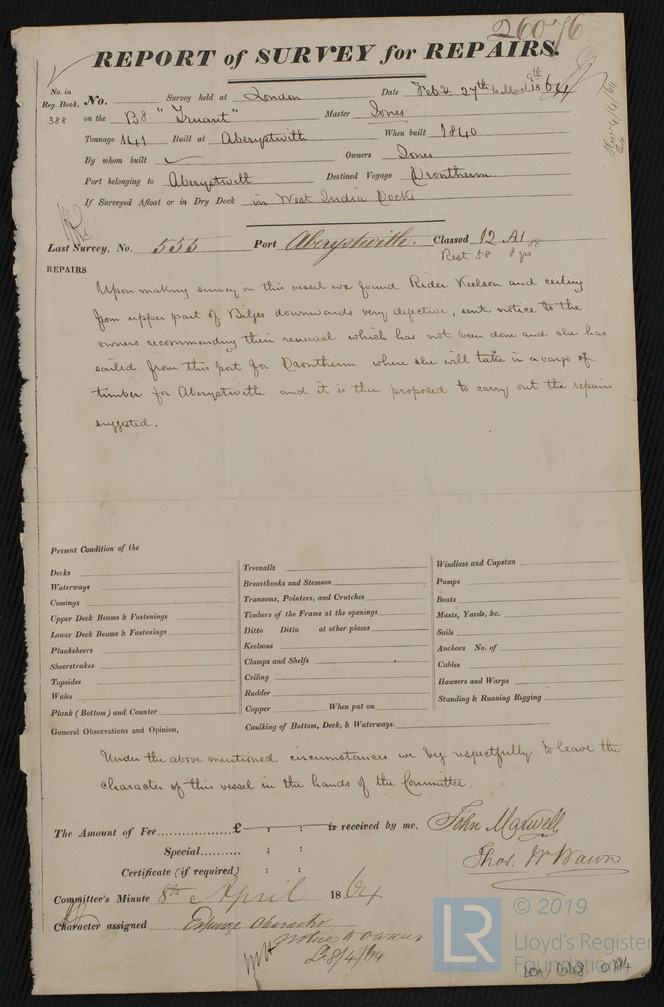 26076
REPORT of SURVEY for REPAIRS.
No. in Reg. Book. No. Survey held at London Date Feby 27th to March 9th 1864
388 on the Bg "Truant" Master Jones
Tonnage 141 Built at Aberystwith When built 1840
By whom built Owners Jones
Port belonging to Aberystwith Destined Voyage Drontheim
If Surveyed Afloat or in Dry Dock in West India Docks
Last Survey, No. 555 Port Aberystwith. Classed 12 A1 58
Rest 58 8 yrs
REPAIRS
Upon making survey on this vessel we found Rider Keelson and ceiling
from upper part of Bilges downwards very defective, sent notice to the
owners recommending their renewal which has not been done and she has
sailed from this port for Drontheim where she will take in a cargo of
timber for Aberystwith and it is then proposed to carry out the repairs
suggested.
Present Condition of the
Decks
Waterways
Comings
Upper Deck Beams & Fastenings
Lower Deck Beams & Fastenings
Planksheers
Sheerstrakes
Topsides
Wales
Plank (Bottom) and Counter
Treenails
Breasthooks and Stemson
Transoms, Pointers, and Crutches
Timbers of the Frame at the openings
Ditto Ditto at other places
Keelsons
Clamps and Shelfs
Ceiling
Rudder
Copper When put on
Caulking of Bottom, Deck, & Waterways.
Windlass and Capstan
Pumps
Boats
Masts, Yards, &c.
Sails
Anchors No. of
Cables
Hawsers and Warps
Standing & Running Rigging
General Observations and Opinion,
Under the above mentioned circumstances we beg respectfully to leave the
character of this vessel in the hands of the Committee.
The Amount of Fee.................. £ : : is received by me, John Maxwell
Special.......... : : Thos. W Wawn
Certificate (if required) : :
Committee's Minute 8th April 1864
Character assigned Expunge Character
Notice to Owners
8/4/64
LR
© 2019
Lloyd's Register
Foundation
LON 648 0194